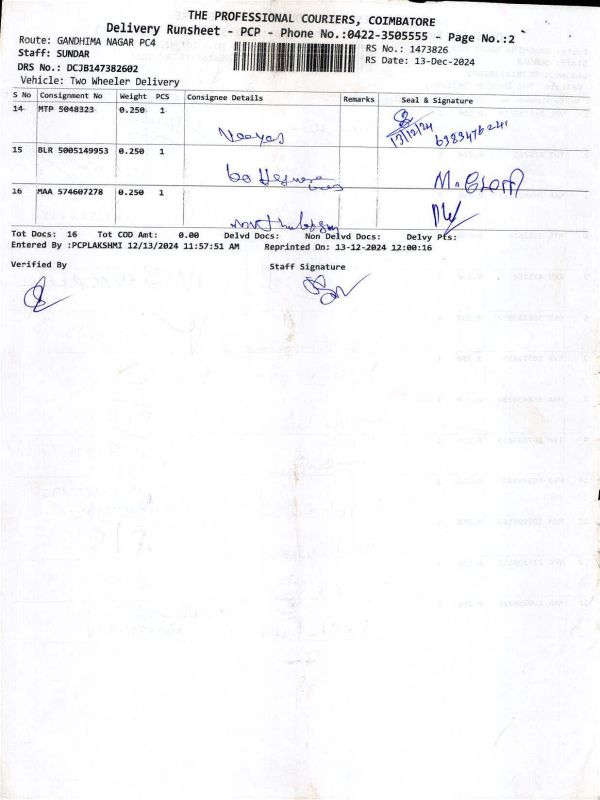 THE PROFESSIONAL COURIERS, COIMBATORE
Delivery Runsheet - PCP - Phone No.:0422-3505555 - Page No.:2
Route: GANDHIMA NAGAR PC4
RS No.: 1473826
Staff: SUNDAR
RS Date: 13-Dec-2024
DRS No.: DCJB147382602
Vehicle: Two Wheeler Delivery
S No Consignment No Weight PCS Consignee Details Remarks Seal & Signature
14 MTP 5048323 0.250 1
13/12/24
15 BLR 5005149953 0.250 1
16 MAA 574607278 0.250 1
Tot Docs: 16 Tot COD Amt: 0.00 Delvd Docs: Non Delvd Docs: Delvy Pts:
Entered By :PCPLAKSHMI 12/13/2024 11:57:51 AM Reprinted On: 13-12-2024 12:00:16
Verified By Staff Signature